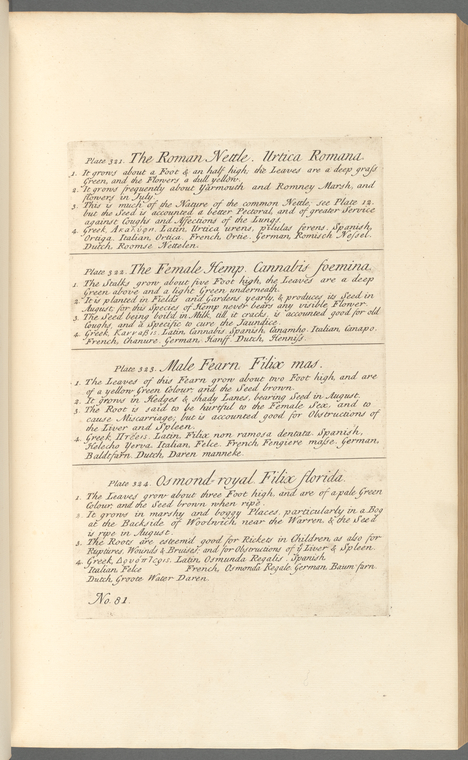 Plate 321. The Roman Nettle. Urtica Romana.
1. It grows about a Foot & an half high, the Leaves are a deep grass
Green, and the Flowers a dull yellow.
2. It grows frequently about Yarmouth and Romney Marsh, and
flowers in July.
3. This is much of the Nature of the common Nettle, see Plate 12.
but the Seed is accounted a better Pectoral, and of greater Service
against Coughs and Affections of the Lungs.
4. Greek, Latin, Urtica urens, pilulas ferens, Spanish,
Ortiga. Italian, Ortica. French, Ortie. German, Romisch Nessel.
Dutch, Roomse Nettelen.
Plate 322. The Female Hemp. Cannabis foemina.
1. The Stalks grow about five Foot high, the Leaves are a deep
Green above and a light Green underneath.
2. It is planted in Fields and Gardens yearly, & produces its Seed in
August, for this Species of Hemp never bears any visible Flower.
3. The Seed being boil'd in Milk, till it cracks, is accounted good for old
Coughs, and a Specific to cure the Jaundice.
4. Greek, Κανναβις. Latin, Cannabis. Spanish, Canamho. Italian, Canapo.
French, Chanure. German, Hanff. Dutch, Henniss.
Plate 323. Male Fearn. Filix mas.
1. The Leaves of this Fearn grow about two Foot high, and are
of a yellow Green Colour, and the Seed brown.
2. It grows in Hedges & shady Lanes, bearing Seed in August.
3. The Root is said to be hurtful to the Female Sex, and to
cause Miscarriage; but is accounted good for Obstructions of
the Liver and Spleen.
4. Greek, Πτέρις. Latin, Filix non ramosa dentata. Spanish,
Helecho Yerva. Italian, Felce. French, Fengiere masse. German,
Baldtfarn. Dutch, Daren manneke.
Plate 324. Osmond-royal. Filix florida.
1. The Leaves grow about three Foot high, and are of a pale Green
Colour, and the Seed brown when ripe.
2. It grows in marshy and boggy Places, particularly in a Bog
at the Backside of Woolwich near the Warren, & the Seed
is ripe in August.
3. The Roots are esteemd good for Rickets in Children, as also for
Ruptures, Wounds & Bruises, and for Obstructions of ye Liver & Spleen.
4. Greek, Latin, Osmunda Regalis. Spanish,
Italian, Felce French, Osmonda Regale. German, Baum-farn.
Dutch, Groote Water Daren.
No. 81.